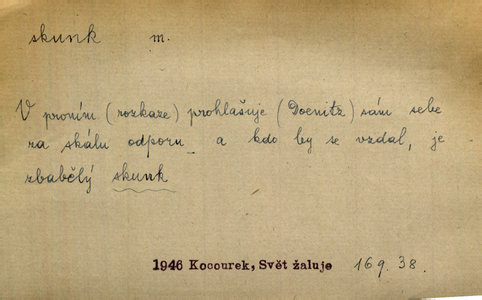 skunk m.
V prvním (rozkaze) prohlašuje (Doenitz) sám sebe
za skálu odporu _ a kdo by se vzdal, je
zbabělý skunk
1946 Kocourek, Svět žaluje 169. 38.